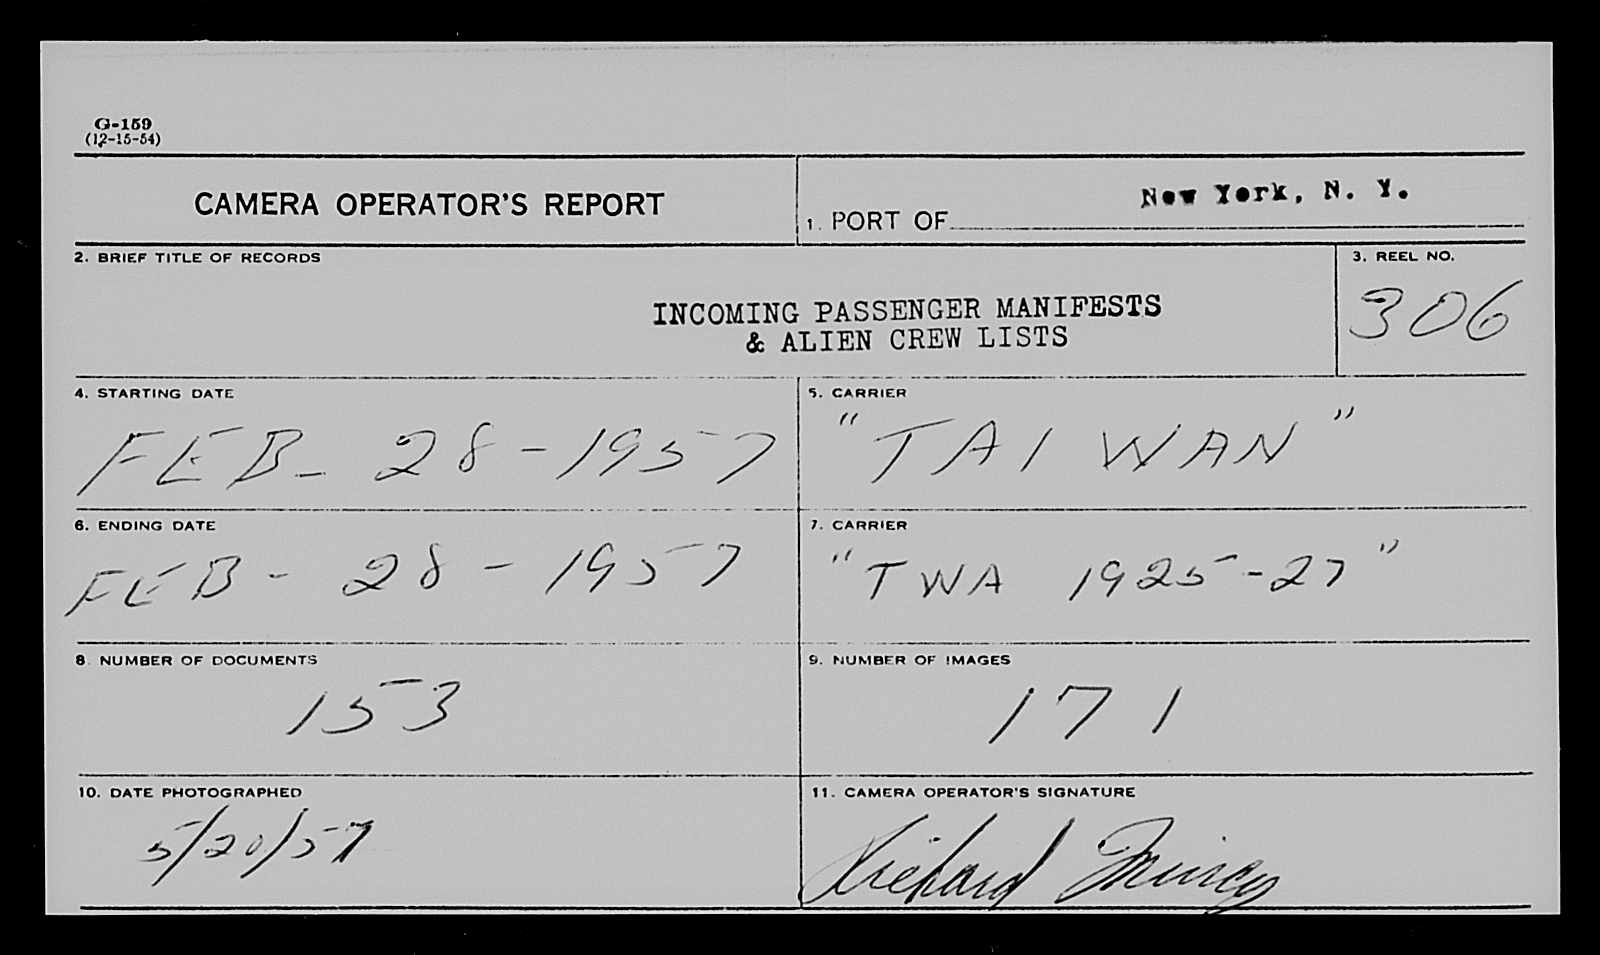 G-159
(12-15-54)
CAMERA OPERATOR'S REPORT
1. PORT OF New York, N. Y.
2. BRIEF TITLE OF RECORDS
INCOMING PASSENGER MANIFESTS
& ALIEN CREW LISTS
3. REEL NO.
306
4. STARTING DATE
FEB- 28-1957
5. CARRIER
"TAIWAN"
6. ENDING DATE
FEB- 28-1957
7. CARRIER
"TWA 1925-27"
8. NUMBER OF DOCUMENTS
153
9. NUMBER OF IMAGES
171
10. DATE PHOTOGRAPHED
5/20/57
11. CAMERA OPERATOR'S SIGNATURE
Richard